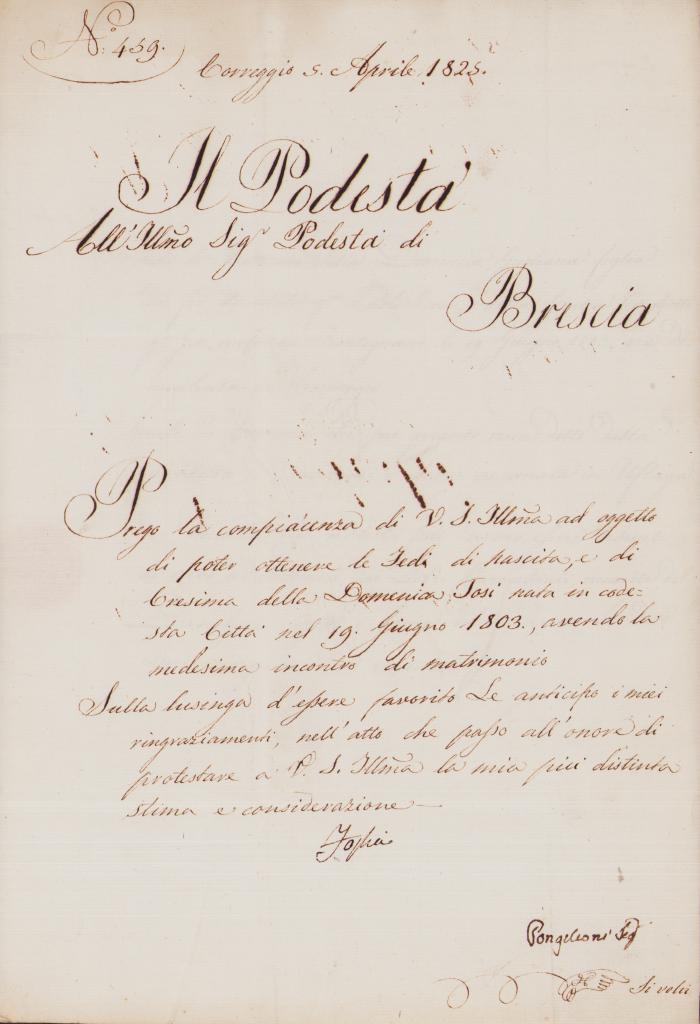 N.º 459.
Correggio 5. Aprile 1825.
Il Podestà
All'Illmo Sigr Podestà di
Brescia
Prego la compiacenza di V. S. Illma ad oggetto
di poter ottenere le Fedi di nascita, e di
Cresima della Domenica Tosi nata in code=
sta Città nel 19. Giugno 1803., avendo la
medesima incontro di matrimonio
Sulla lusinga d'essere favorito Le anticipo i miei
ringraziamenti, nell'atto che passo all'onore di
protestare a V. S. Illma la mia più distinta
stima e considerazione —
Pongileoni Seg
Si volti